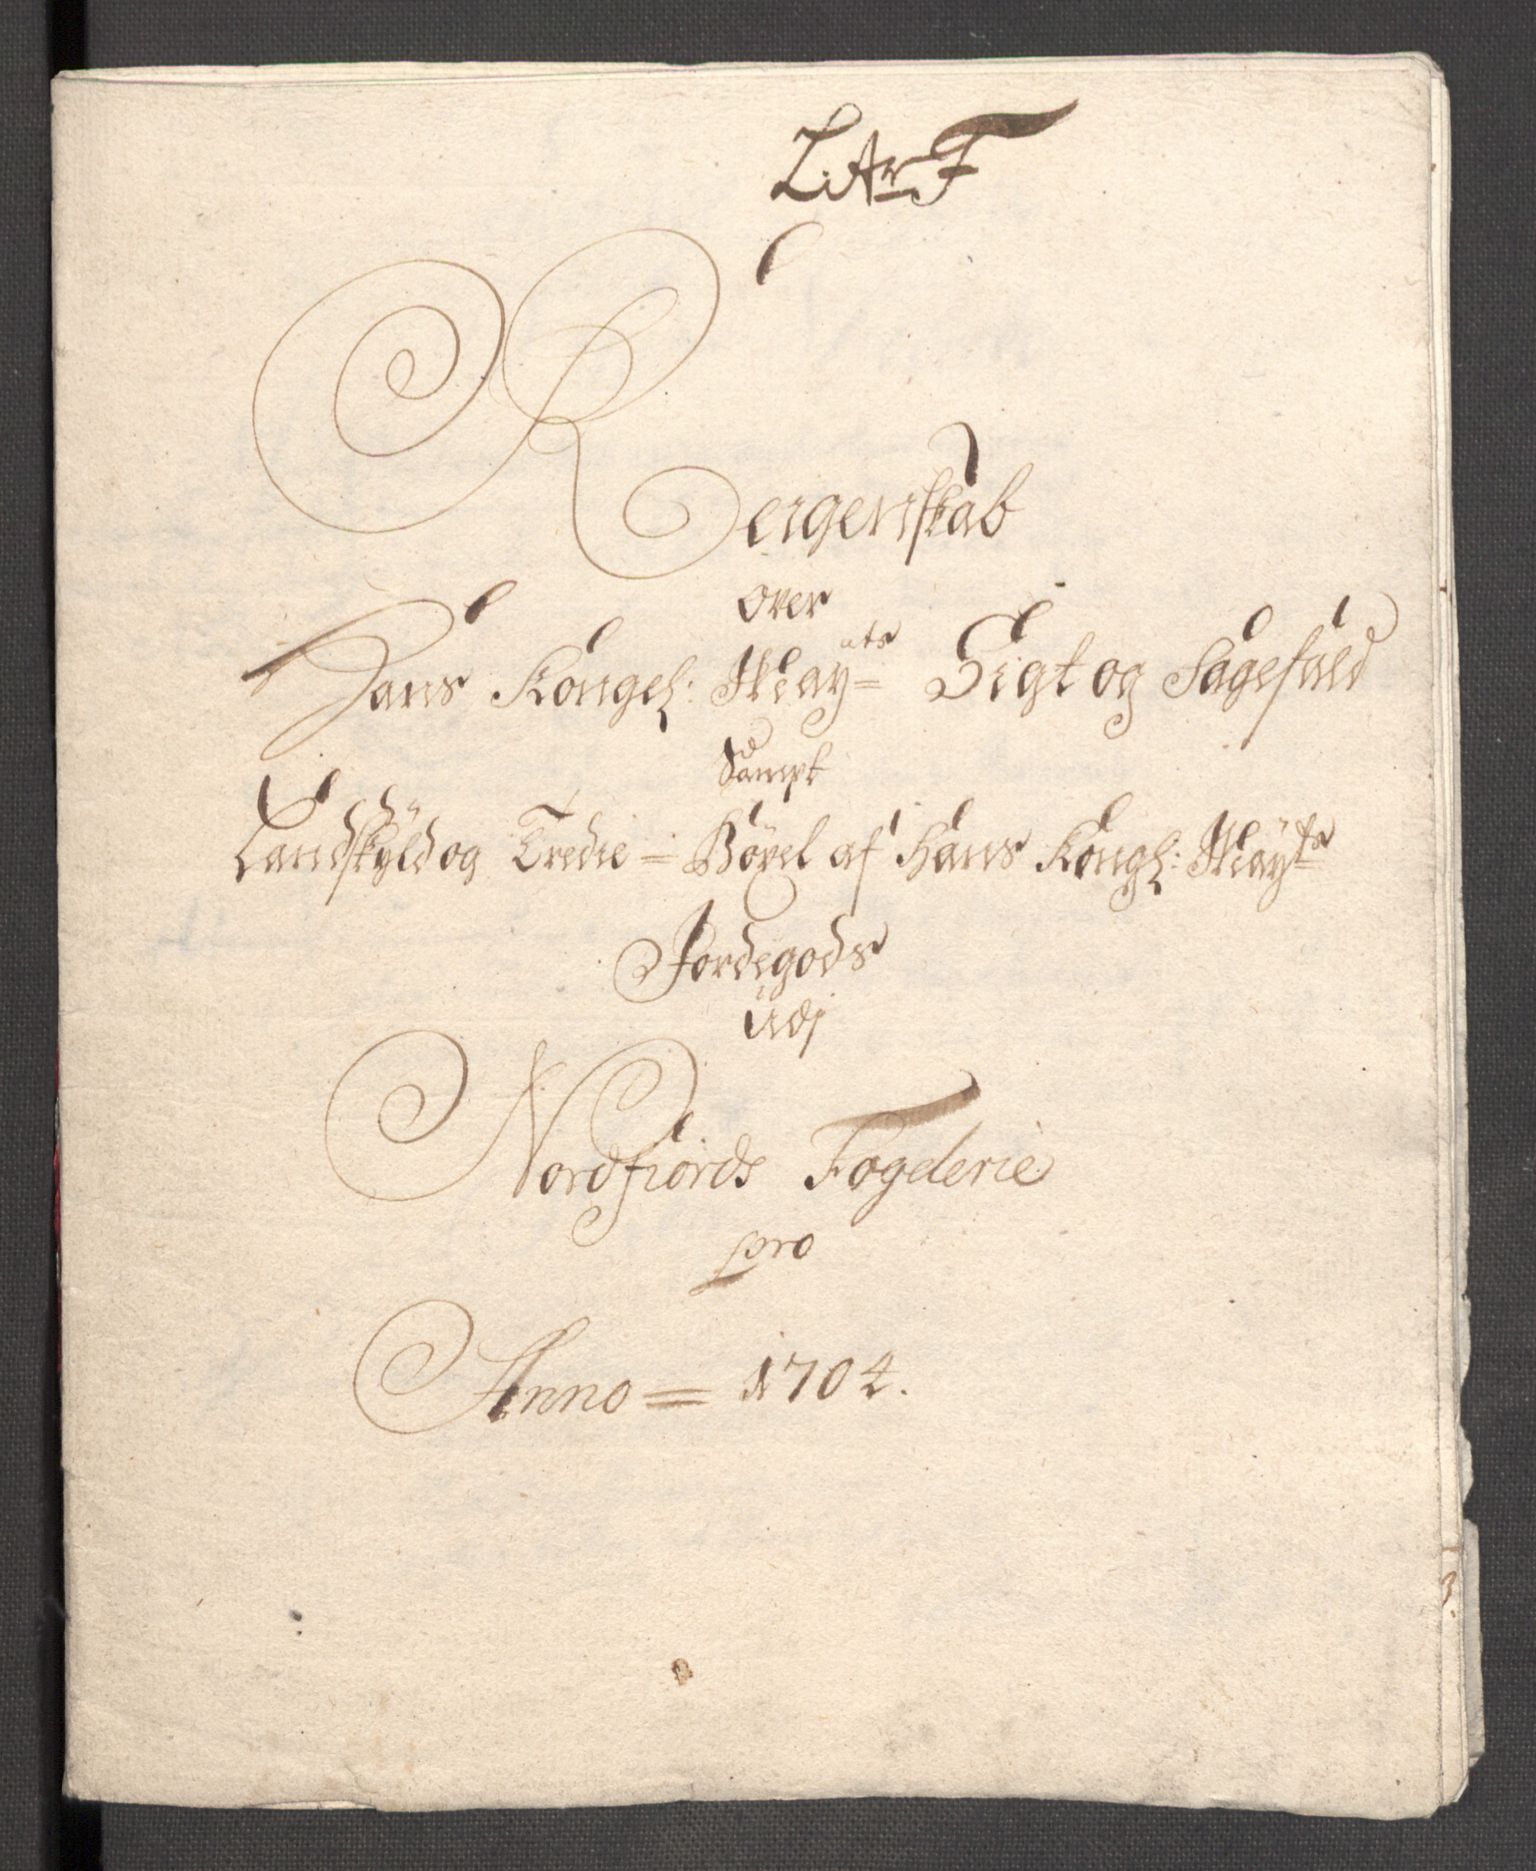 L: Ar F
Reigenskab
over
Hans Kongel: May=ets Sigt og Sagefald
Sampt
Landskyld og Tredie = Böxel af Hans Kongl: Mayts
Jordegods
udj
Nordfiords Fogderie
pro
Anno = 1704.
3.